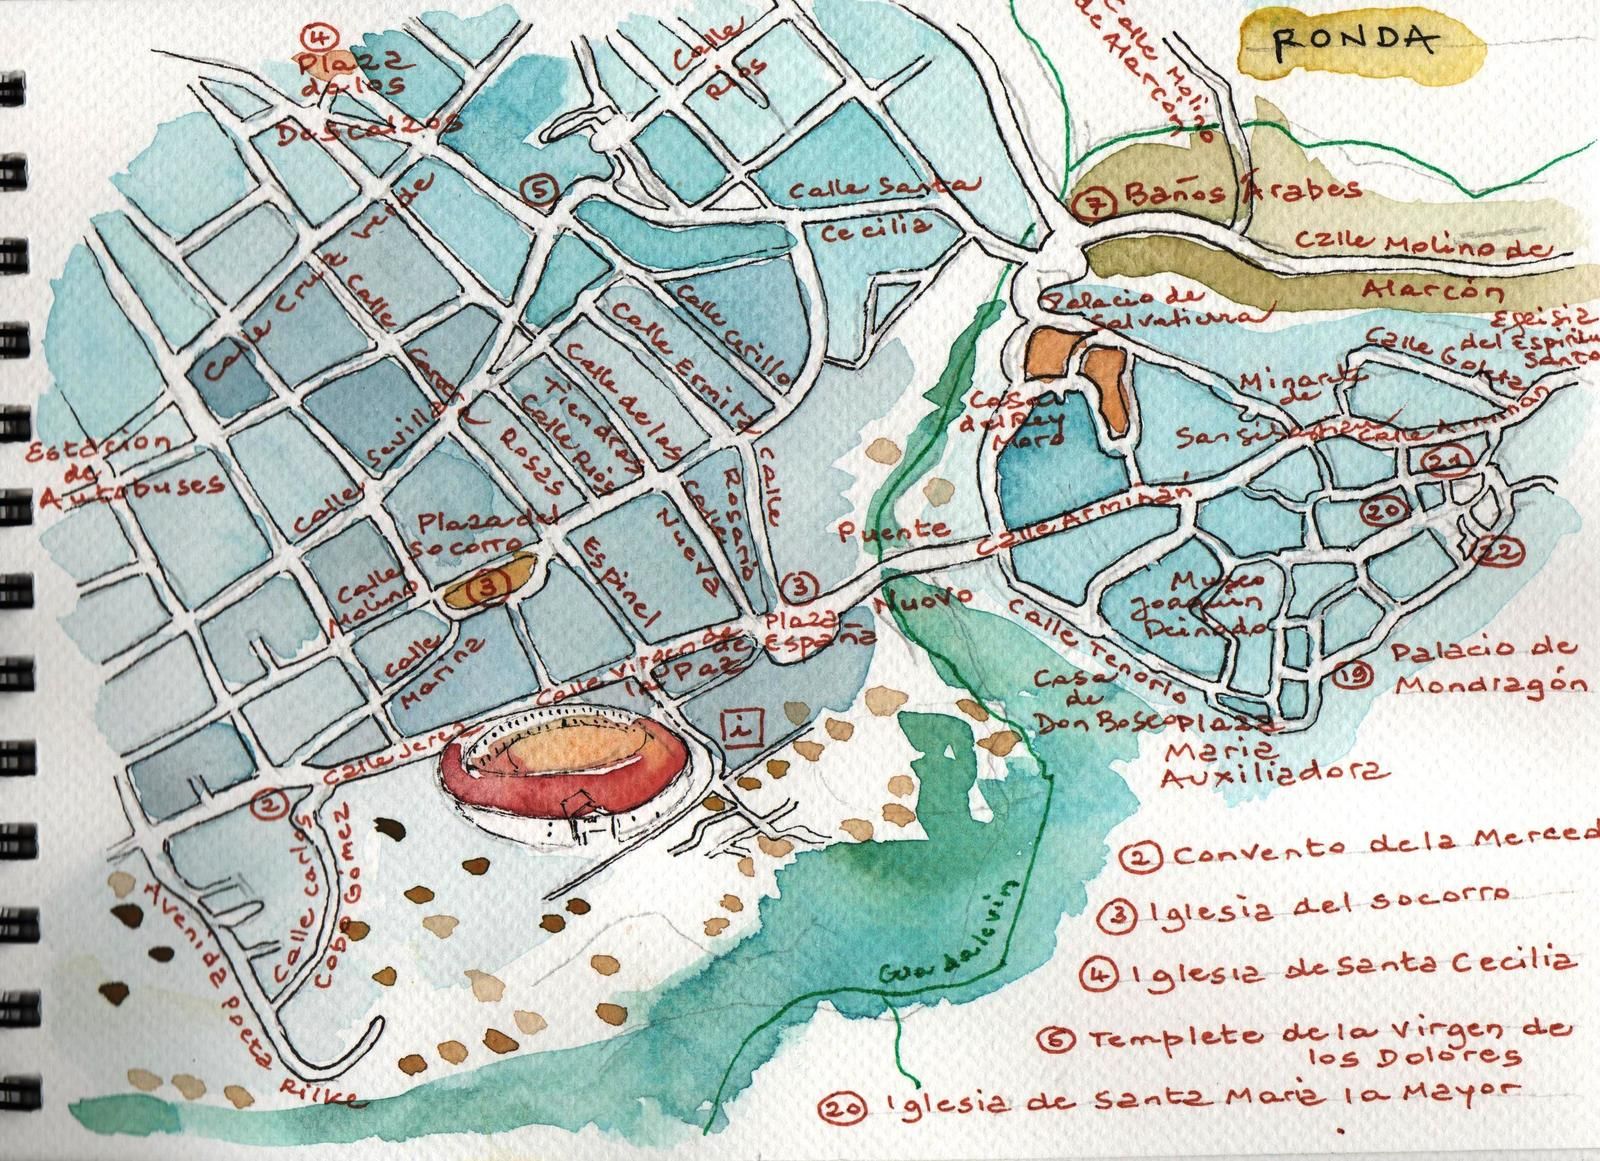 RONDA
4
Plaza
de los
Descalzos
Calle
Ríos
Calle Molino
de Alarcón
5
Calle Santa
Cecilia
7 Baños Árabes
Calle Molino de
Alarcón
Calle Cruz Verde
Calle
Calle Cerillo
Calle Ermita
Calle de las
Tiendas
Calle Ríos
Rosas
Sevilla
Calle
Estación
de
Autobuses
Palacio de
Salvatierra
Casa
del Rey
Moro
Minarete
de
San Sibastian
Calle Goleta
Egeisia
del Espiritu
Santo
Calle Armiñán
21
20
22
Calle Armiñán
Puente
Nuovo
Calle
Rosario
Calle
Nueva
Espinel
Plaza del
Socorro
3
Calle
Molino
Calle
Marina
3
Plaza
España
Calle Virgen de
la Paz
Calle Jerez
i
2
Calle Carlos
Cobo Gómez
Avenida Poeta
Rilke
Calle Tenorio
Casa
de
Don Bosco
Plaza
Maria
Auxiliadora
Museo
Joaquin
Peinado
19 Palacio de
Mondragón
Guadalevin
2 Convento de la Merced
3 Iglesia del Socorro
4 Iglesia de Santa Cecilia
6 Templete de la Virgen de
los Dolores
20 Iglesia de Santa Maria la Mayor